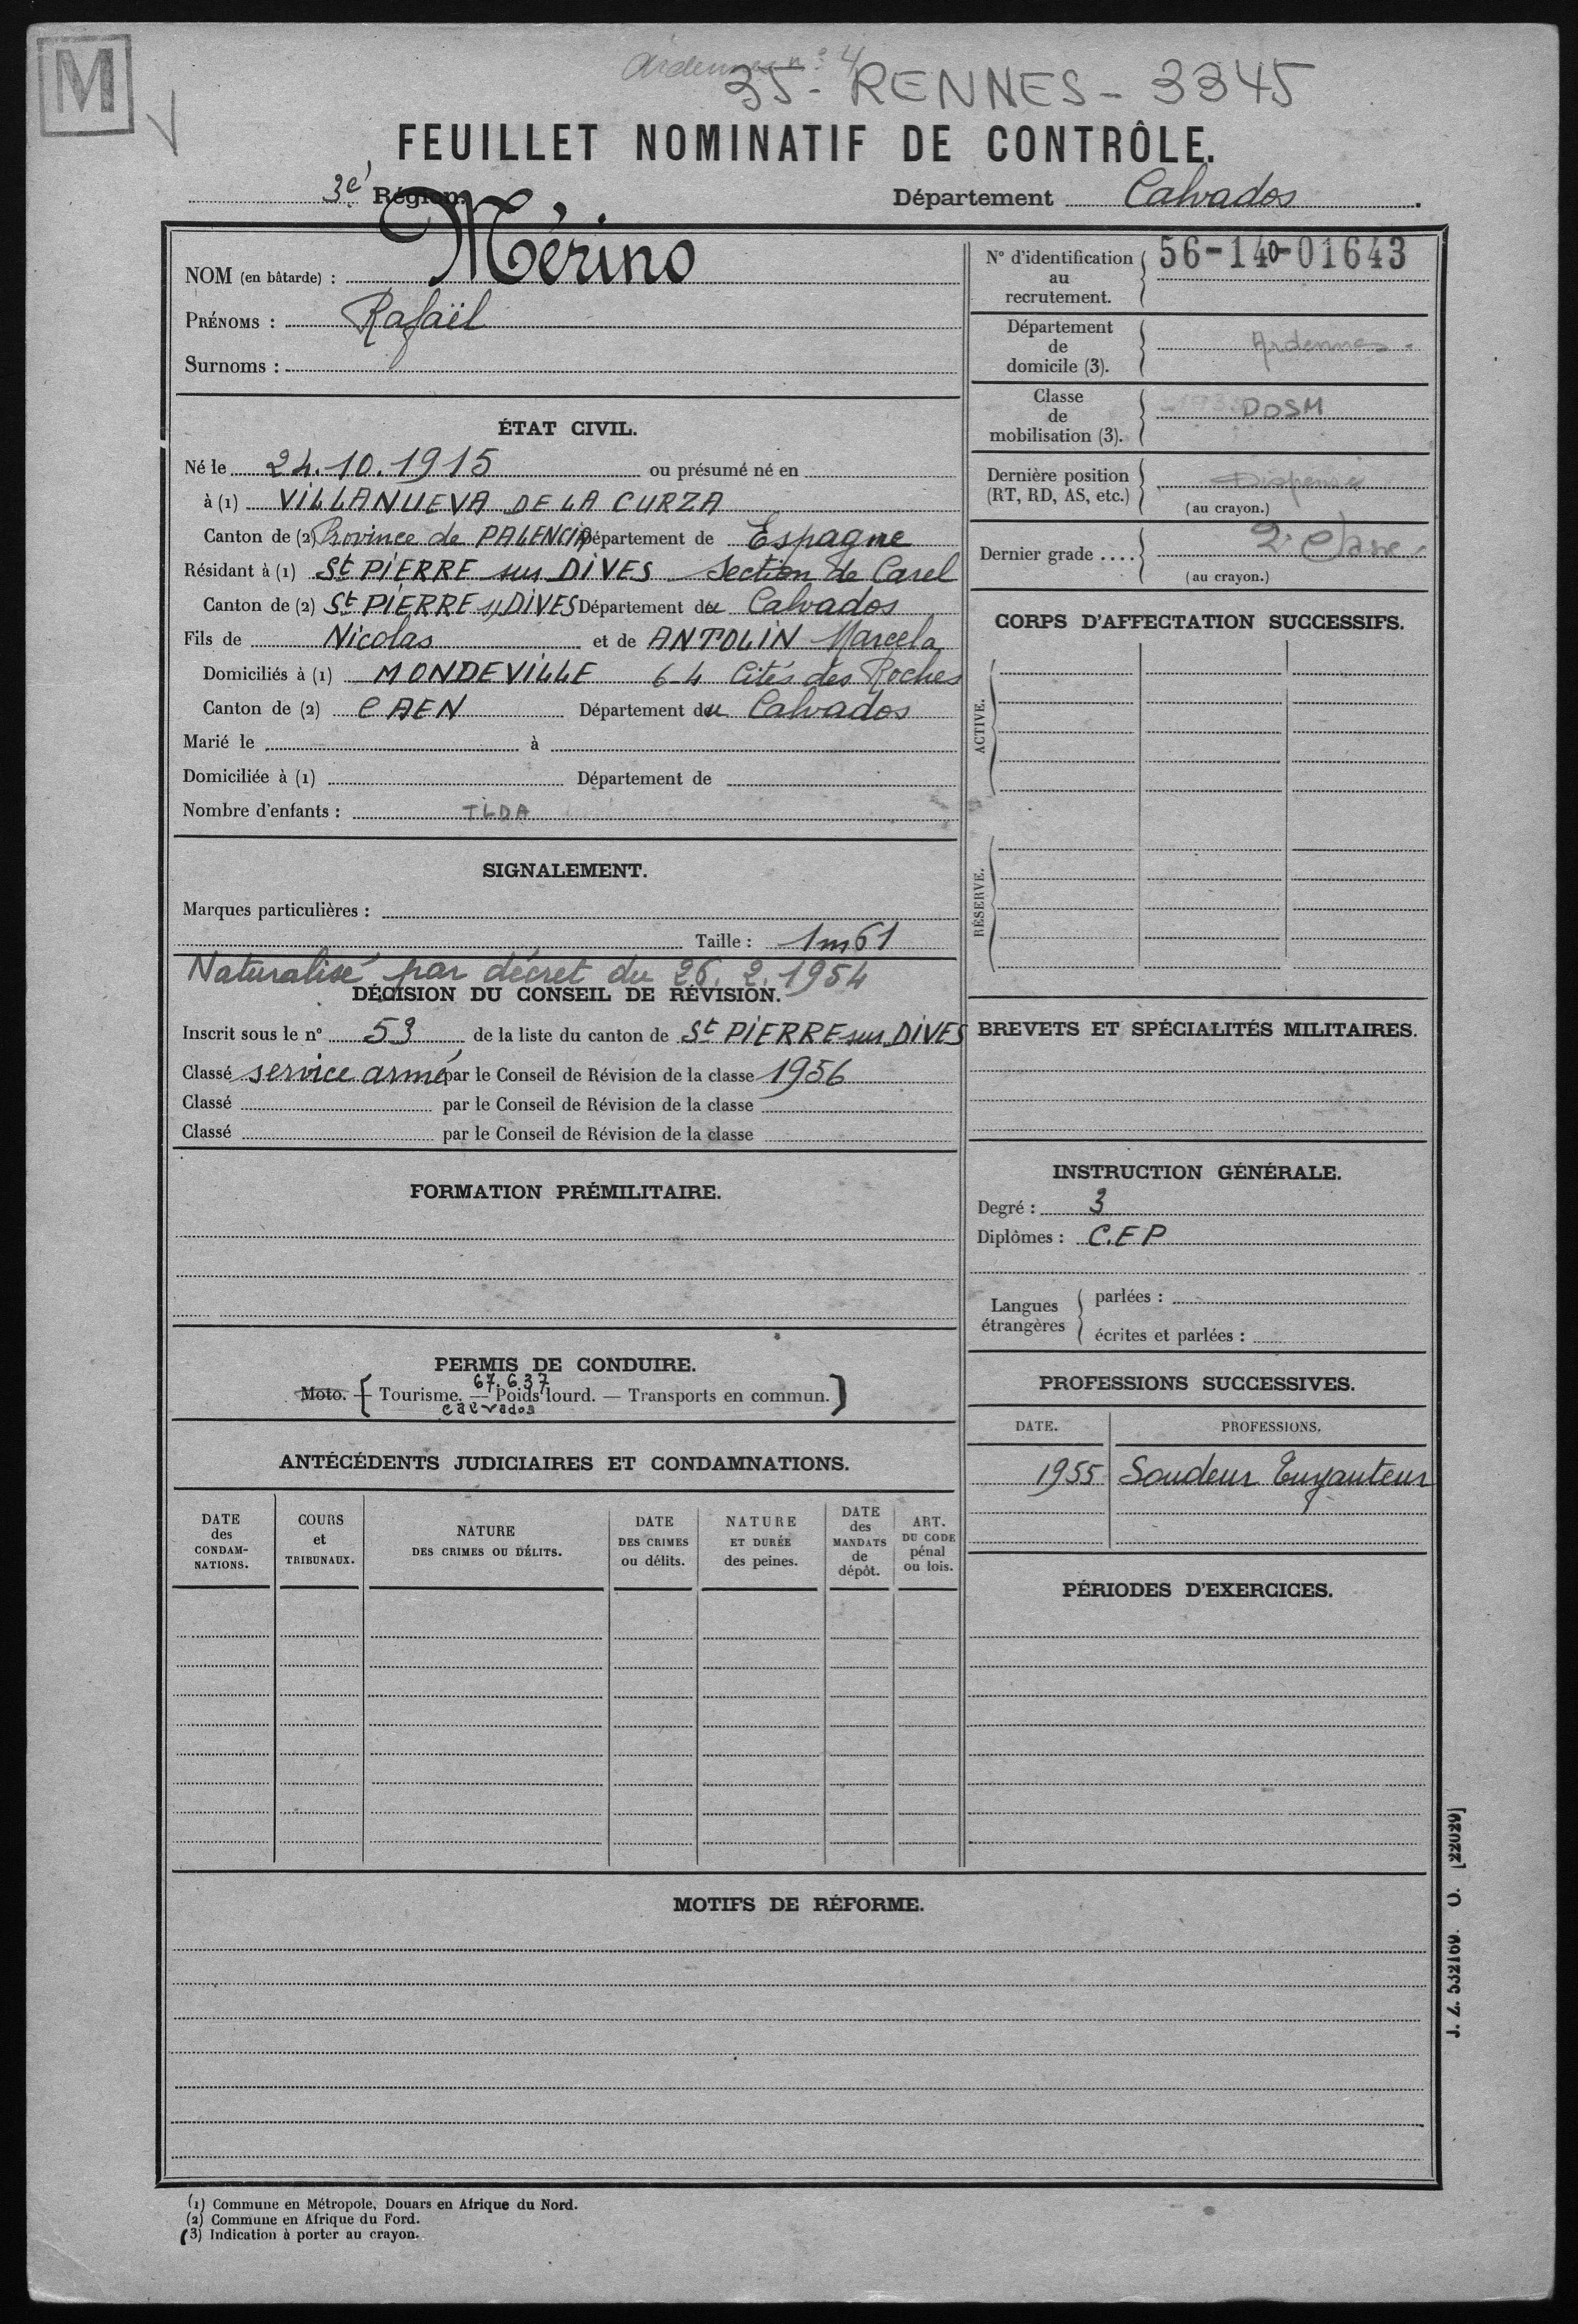 M
Ardennes n° 4
35 - RENNES - 3345
FEUILLET NOMINATIF DE CONTRÔLE.
3e Région.
Département Calvados.
NOM (en bâtarde) : Mérino
PRÉNOMS : Rafaël
Surnoms :
ÉTAT CIVIL.
Né le 24.10.1915 ou présumé né en
à (1) VILLANUEVA DE LA CURZA
Canton de (2) Province de PALENCIA Département de Espagne
Résidant à (1) St PIERRE sur DIVES Section de Carel
Canton de (2) St PIERRE s/ DIVES Département du Calvados
Fils de Nicolas et de ANTOLIN Marcela
Domiciliés à (1) MONDEVILLE 6-4 Cités des Roches
Canton de (2) CAEN Département du Calvados
Marié le à
Domiciliée à (1) Département de
Nombre d'enfants : TLDA
SIGNALEMENT.
Marques particulières :
Taille : 1m61
Naturalisé par décret du 26.2.1954
DÉCISION DU CONSEIL DE RÉVISION.
Inscrit sous le n° 53 de la liste du canton de St PIERRE sur DIVES
Classé service armé par le Conseil de Révision de la classe 1956
Classé par le Conseil de Révision de la classe
Classé par le Conseil de Révision de la classe
FORMATION PRÉMILITAIRE.
PERMIS DE CONDUIRE.
67.637
Moto. — Tourisme. — Poids lourd. — Transports en commun.
Calvados
ANTÉCÉDENTS JUDICIAIRES ET CONDAMNATIONS.
DATE des CONDAMNATIONS.
COURS et TRIBUNAUX.
NATURE DES CRIMES OU DÉLITS.
DATE DES CRIMES ou délits.
NATURE ET DURÉE des peines.
DATE des MANDATS de dépôt.
ART. DU CODE pénal ou lois.
N° d'identification au recrutement. 56-140-01643
Département de domicile (3). Ardennes.
Classe de mobilisation (3). DOSM
Dernière position (RT, RD, AS, etc.) Dispensé
(au crayon.)
Dernier grade .... 2e Classe
(au crayon.)
CORPS D'AFFECTATION SUCCESSIFS.
ACTIVE.
RÉSERVE.
BREVETS ET SPÉCIALITÉS MILITAIRES.
INSTRUCTION GÉNÉRALE.
Degré : 3
Diplômes : C.E.P
Langues étrangères
parlées :
écrites et parlées :
PROFESSIONS SUCCESSIVES.
DATE. PROFESSIONS.
1955 Soudeur Tuyauteur
PÉRIODES D'EXERCICES.
MOTIFS DE RÉFORME.
(1) Commune en Métropole, Douars en Afrique du Nord.
(2) Commune en Afrique du Ford.
(3) Indication à porter au crayon.